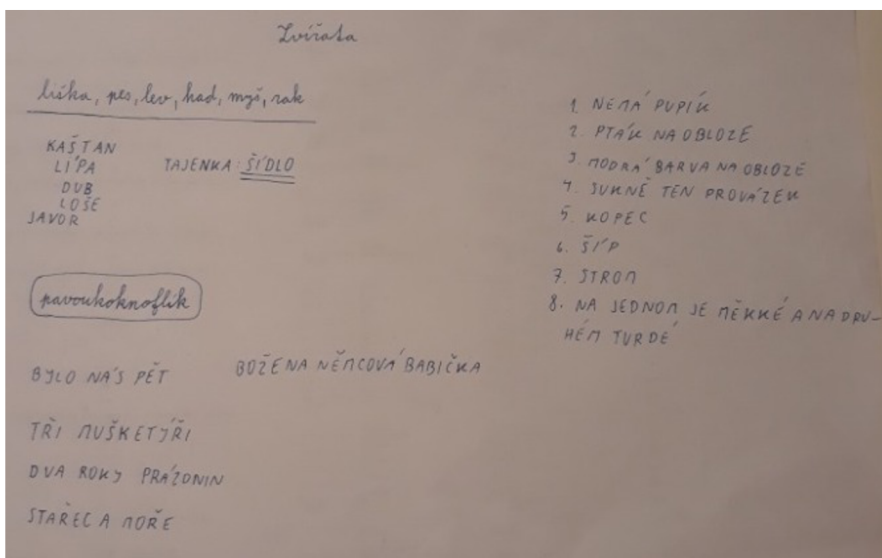 Zvířata
liška, pes, lev, had, myš, rak
KAŠTAN
LÍPA
TAJENKA: ŠÍDLO
DUB
LOŠE
JAVOR
pavoukoknoflík
BYLO NÁS PĚT
BOŽENA NĚMCOVÁ BABIČKA
TŘI MUŠKETÝŘI
DVA ROKY PRÁZDNIN
STAŘEC A MOŘE
1. NEMÁ PUPÍK
2. PTÁK NA OBLOZE
3. MODRÁ BARVA NA OBLOZE
4. SUKNĚ TEN PROVÁZEK
5. KOPEC
6. ŠÍP
7. STROM
8. NA JEDNOM JE MĚKKÉ A NA DRU-
HÉM TVRDÉ